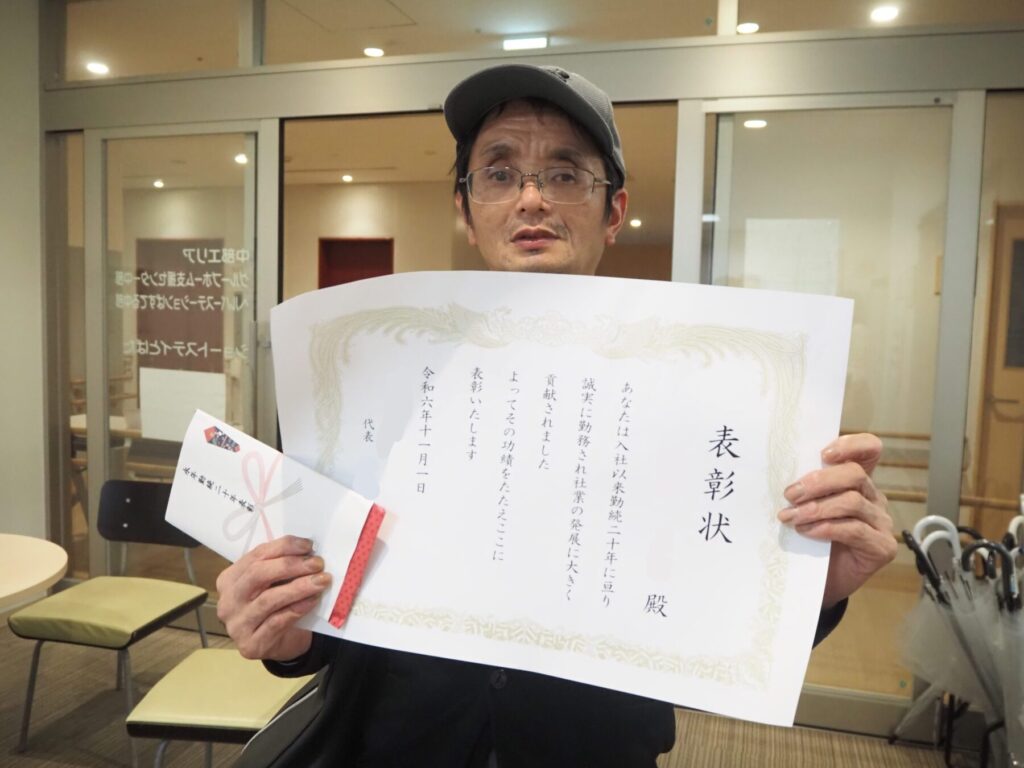 表彰状
殿
あなたは入社以来勤続二十年に亘り
誠実に勤務され社業の発展に大きく
貢献されました
よってその功績をたたえここに
表彰いたします
令和六年十一月一日
代表
永年勤続二十年表彰
中部エリア
グループホーム支援センター中部
ヘルパーステーションはすてる中部
ショートステイとはた